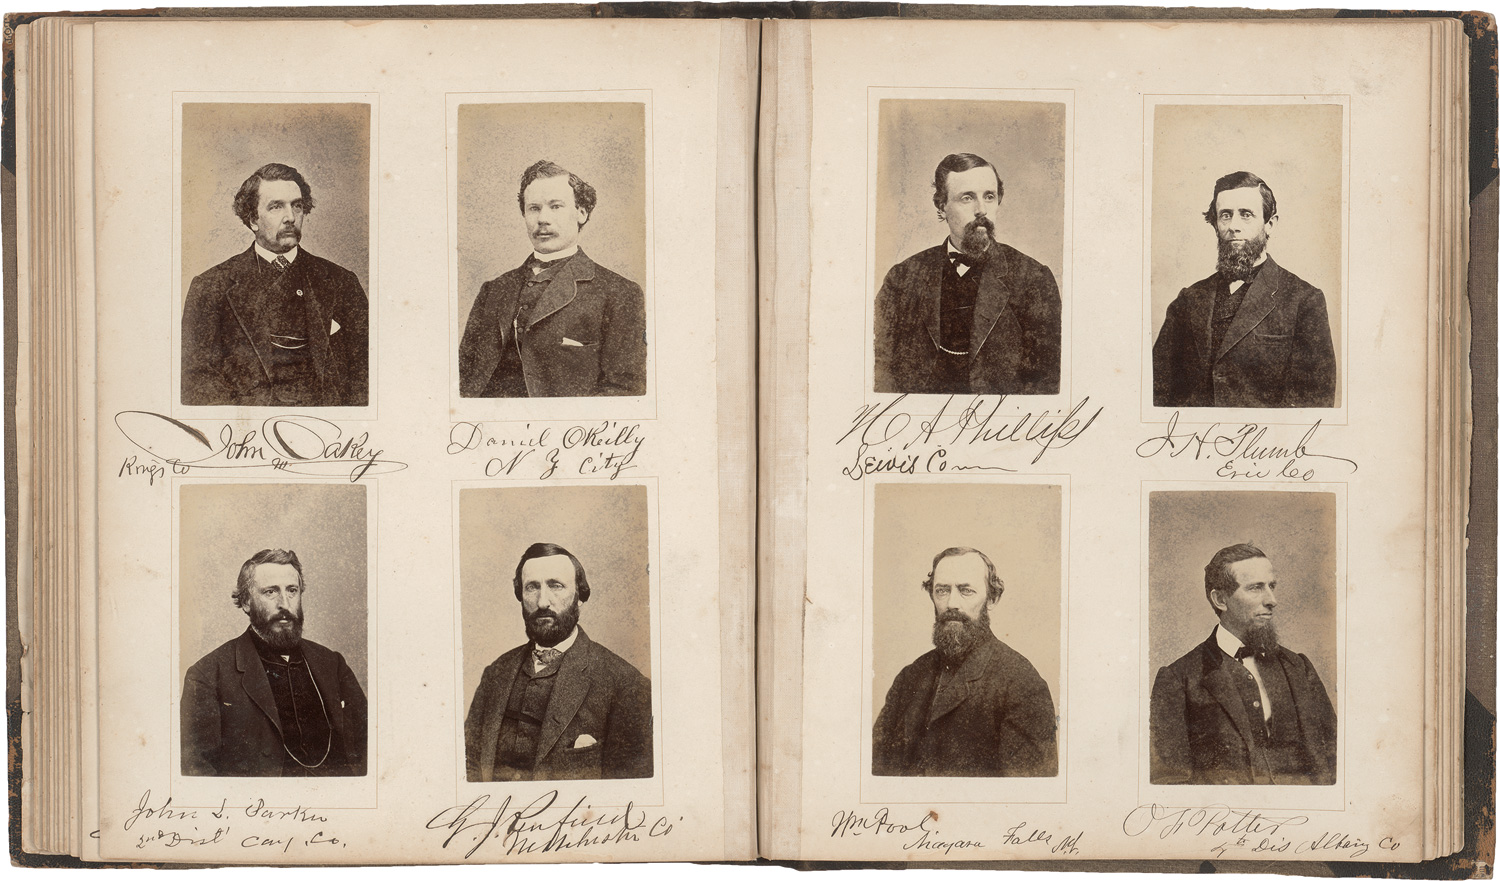 John M. Oakey
Kings Co
Daniel OReilly
N Y City
John L. Parker
2nd Dist Cay. Co.
G. J. Penfield
Westchester Co
N A Phillips
Lewis Co
J. H. Plumb
Erie Co
Wm Pool
Niagara Falls N.Y.
O F Potter
4th Dis Albany Co